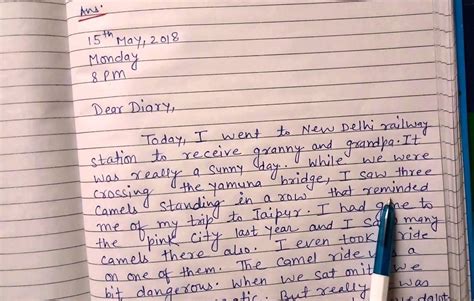 Ans.
15th May, 2018
Monday
8 pm
Dear Diary,
Today, I went to New Delhi railway
station to receive granny and grandpa. It
was really a sunny day. While we were
crossing the yamuna bridge, I saw three
camels standing in a row that reminded
me of my trip to Jaipur. I had gone to
the pink city last year and I saw many
camels there also. I even took ride
on one of them. The camel ride was a
bit dangerous. When we sat on it we
But really